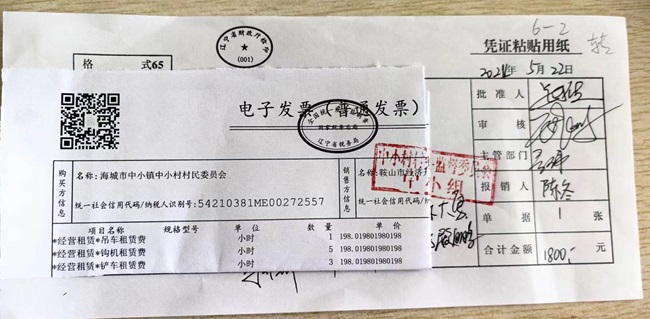 6-2
凭证粘贴用纸
格 式65
辽宁省财政厅监制
(001)
2024年5月22日
电子发票（普通发票）
国家税务总局
辽宁省税务局
批准人
审核
主管部门
报销人 陈冬
单据 1 张
合计金额 1800.- 元
购买方信息
名称:海城市中小镇中小村村民委员会
统一社会信用代码/纳税人识别号:54210381ME00272557
销售方信息
名称:鞍山市经济
统一社会信用代码/
中小村村务监督委员会
审小组
项目名称 规格型号 单位 数量 单
*经营租赁*吊车租赁费 小时 1 198.019801980198
*经营租赁*钩机租赁费 小时 5 198.019801980198
*经营租赁*铲车租赁费 小时 3 198.019801980198